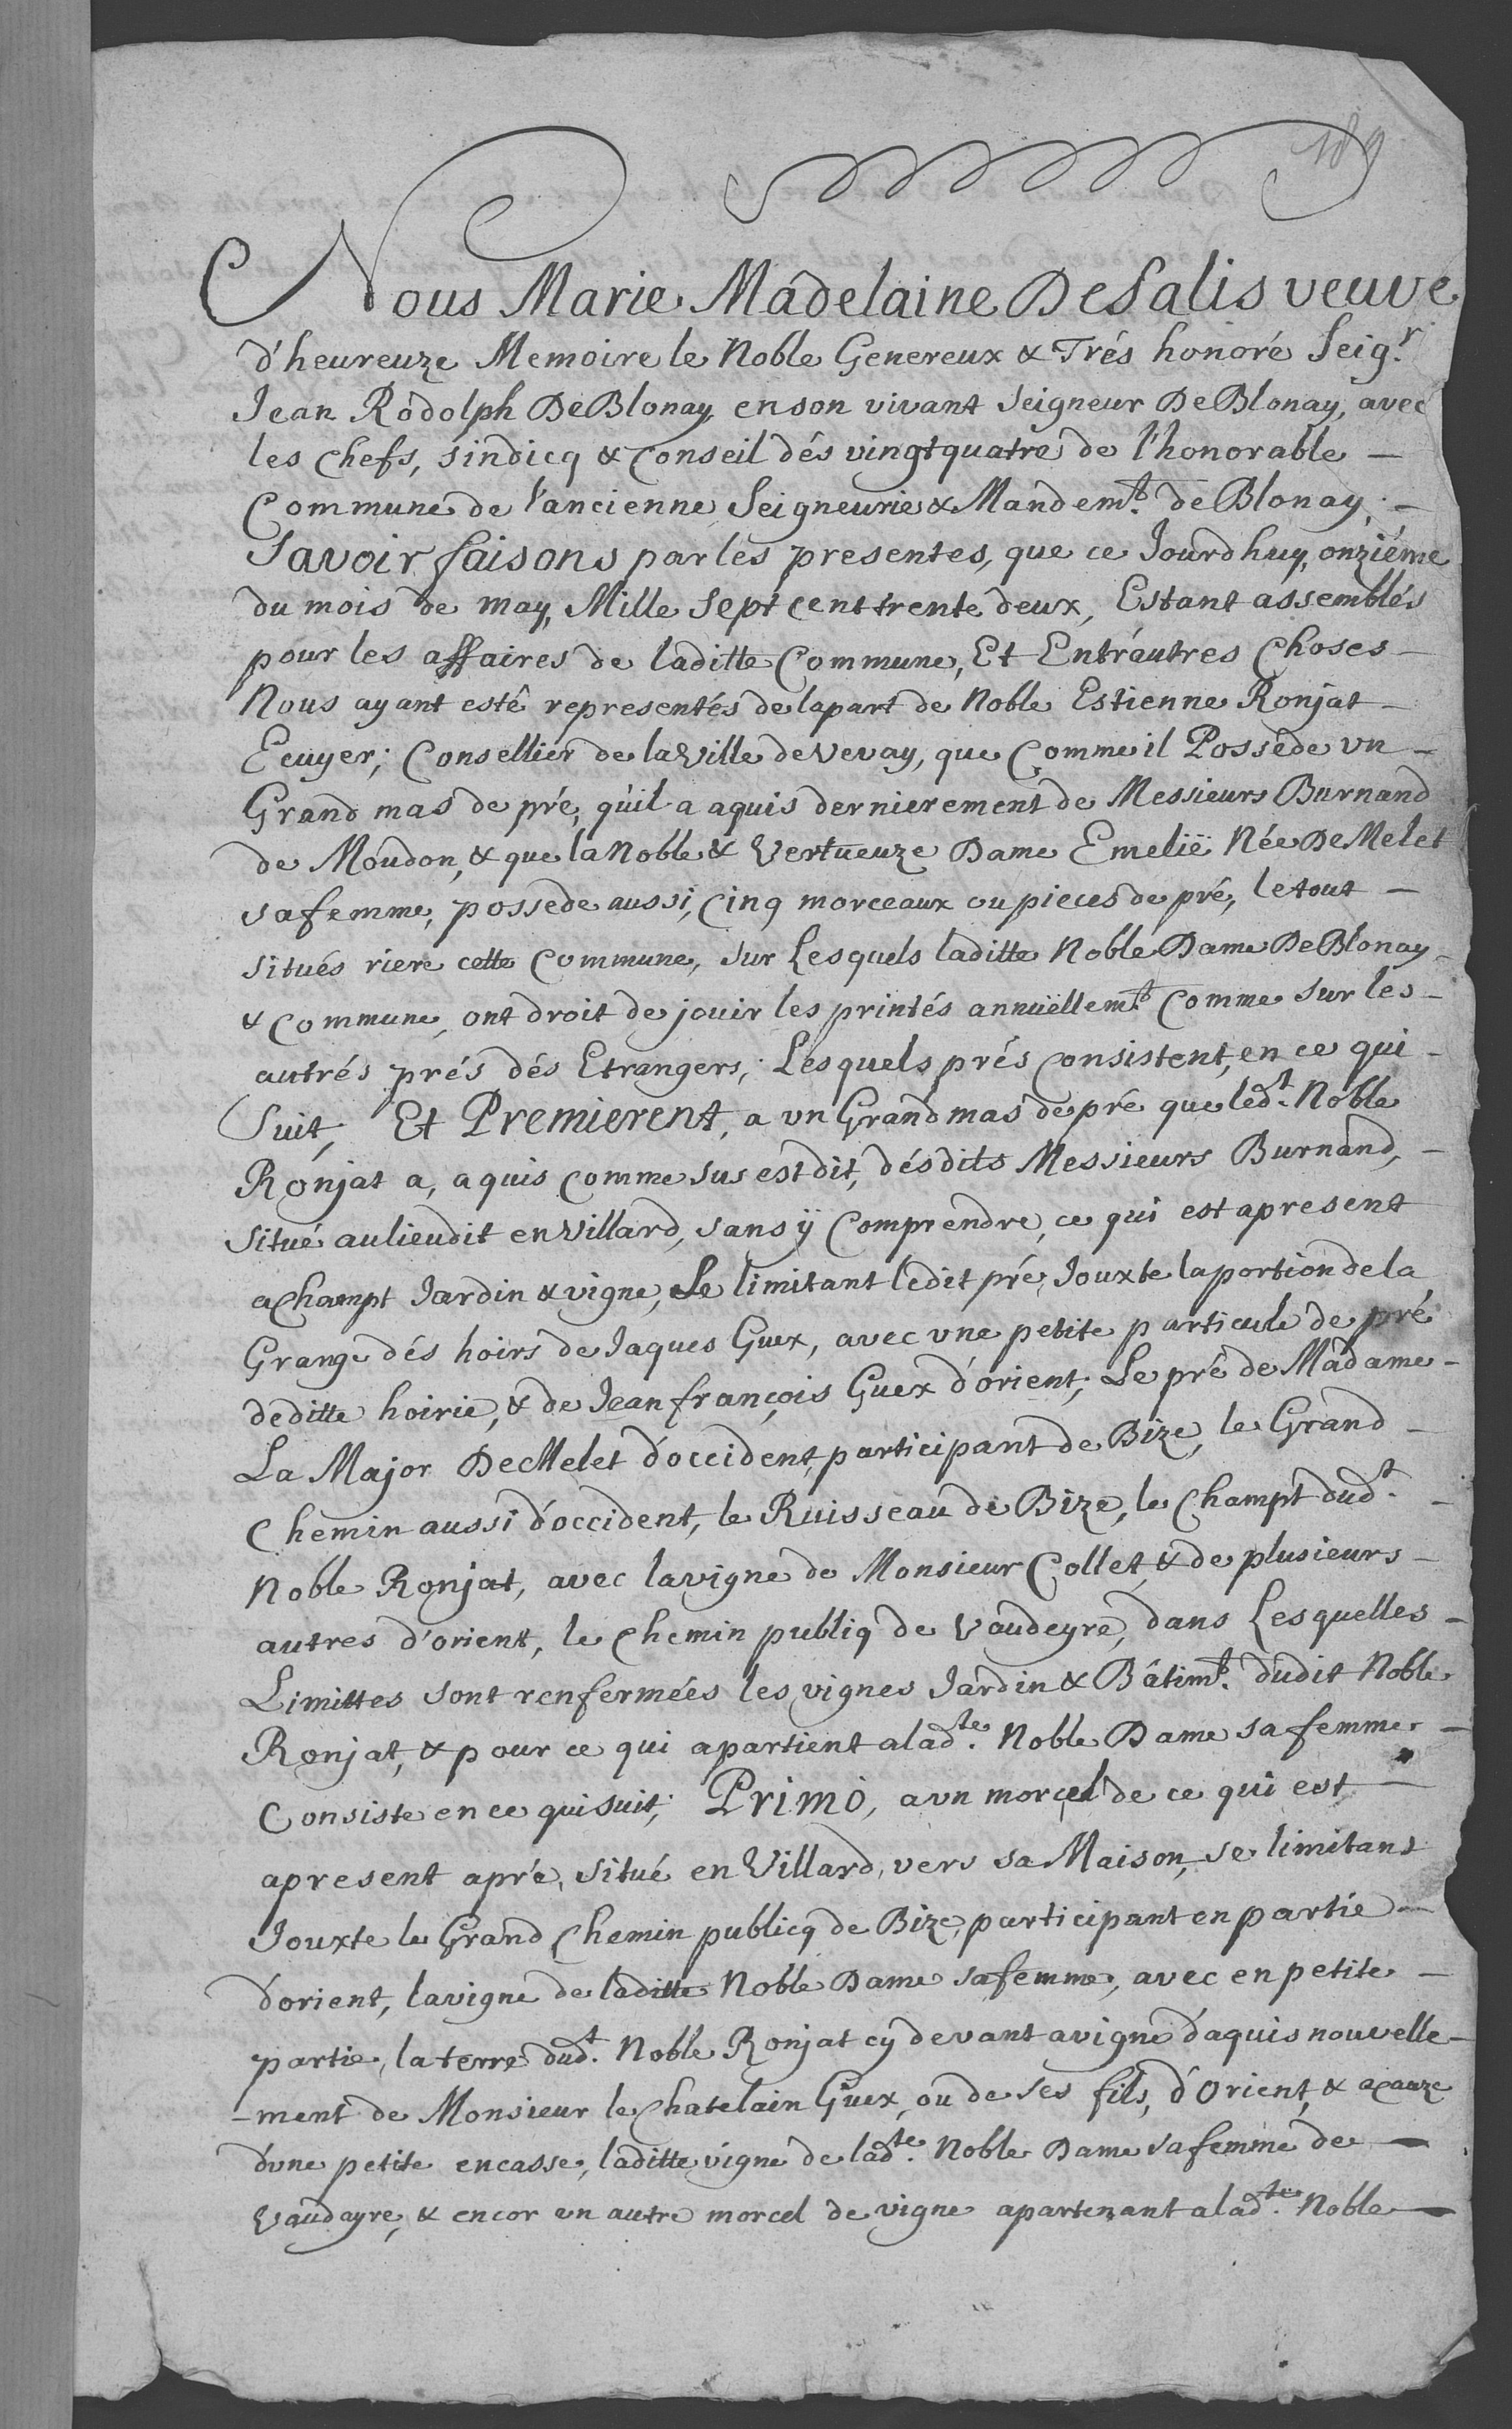 189
Nous Marie Mâdelaine DeSalis veuve
d'heureuze Memoire le Noble Genereux & Trés honoré Seigr.
Jean Rodolph DeBlonay, en son vivant Seigneur DeBlonay, avec
les Chefs, sindicq & Conseil dés vingtquatre de l'honorable —
Commune de l'ancienne Seigneurie & Mandemt. de Blonay; —
Savoir faisons par les presentes, que ce Jourdhuy, onziéme
du mois de may, Mille Sept cent trente deux, Estant assemblés
pour les affaires de laditte Commune, Et Entr'autres Choses —
Nous ayant esté representés de la part de Noble Estienne Ronjat —
Ecuyer; Consellier de la Ville de Vevay, que Comme il Possède vn —
Grand mas de pré, qu'il a aquis dernierement de Messieurs Burnand
de Moudon, & que la Noble & Vertueuze Dame Emelië Née DeMelet
sa femme, possede aussi, Cinq morceaux ou pieces de pré, le tout —
situés riere cette Commune, sur Lesquels laditte Noble Dame DeBlonay
& Commune, ont droit de jouir les printés annuëllemt. Comme sur les —
autrés prés dés Etrangers; Lesquels prés Consistent, en ce qui —
Suit, Et Premierent, a vn Grand mas de pré que ledt. Noble
Ronjat a, aquis Comme sus est dit, désdits Messieurs Burnand, —
situé au lieudit en Villard, sans ÿ Comprendre, ce qui est apresent
a Champt Jardin & vigne, Se limitant ledit pré, Jouxte la portion de la
Grange dés hoirs de Jaques Guex, avec vne petite particule de pré
deditte hoirie, & de Jean françois Guex d'orient; Le pré de Mâdame —
La Major DeMelet d'occident, participant de Bize, le Grand —
Chemin aussi d'occident, le Ruisseau de Bize, le Champt dudt. —
Noble Ronjat, avec la vigne de Monsieur Collet, & de plusieurs —
autres d'orient, le Chemin publiq de Vaudeyre, dans Lesquelles —
Limittes sont renfermées les vignes Jardin & Bâtimt. dudit Noble
Ronjat, & pour ce qui apartient a ladte. Noble Dame sa femme —
Consiste en ce qui suit; Primò, a vn morcel de ce qui est —
apresent apré, situé en Villard, vers sa Maison, se limitant
Jouxte le Grand Chemin publicq de Bize, participant en partie —
d'orient, la vigne de laditte Noble Dame sa femme, avec en petite —
partie, la terre dudt. Noble Ronjat cy devant a vigne d'aquis nouvelle-
-ment de Monsieur le Chatelain Guex, ou de ses fils, d'Orient, & acauze
d'vne petite encasse, laditte vigne de ladte. Noble Dame sa femme de —
Vaudayre, & encor vn autre morcel de vigne apartenant a ladte. Noble —